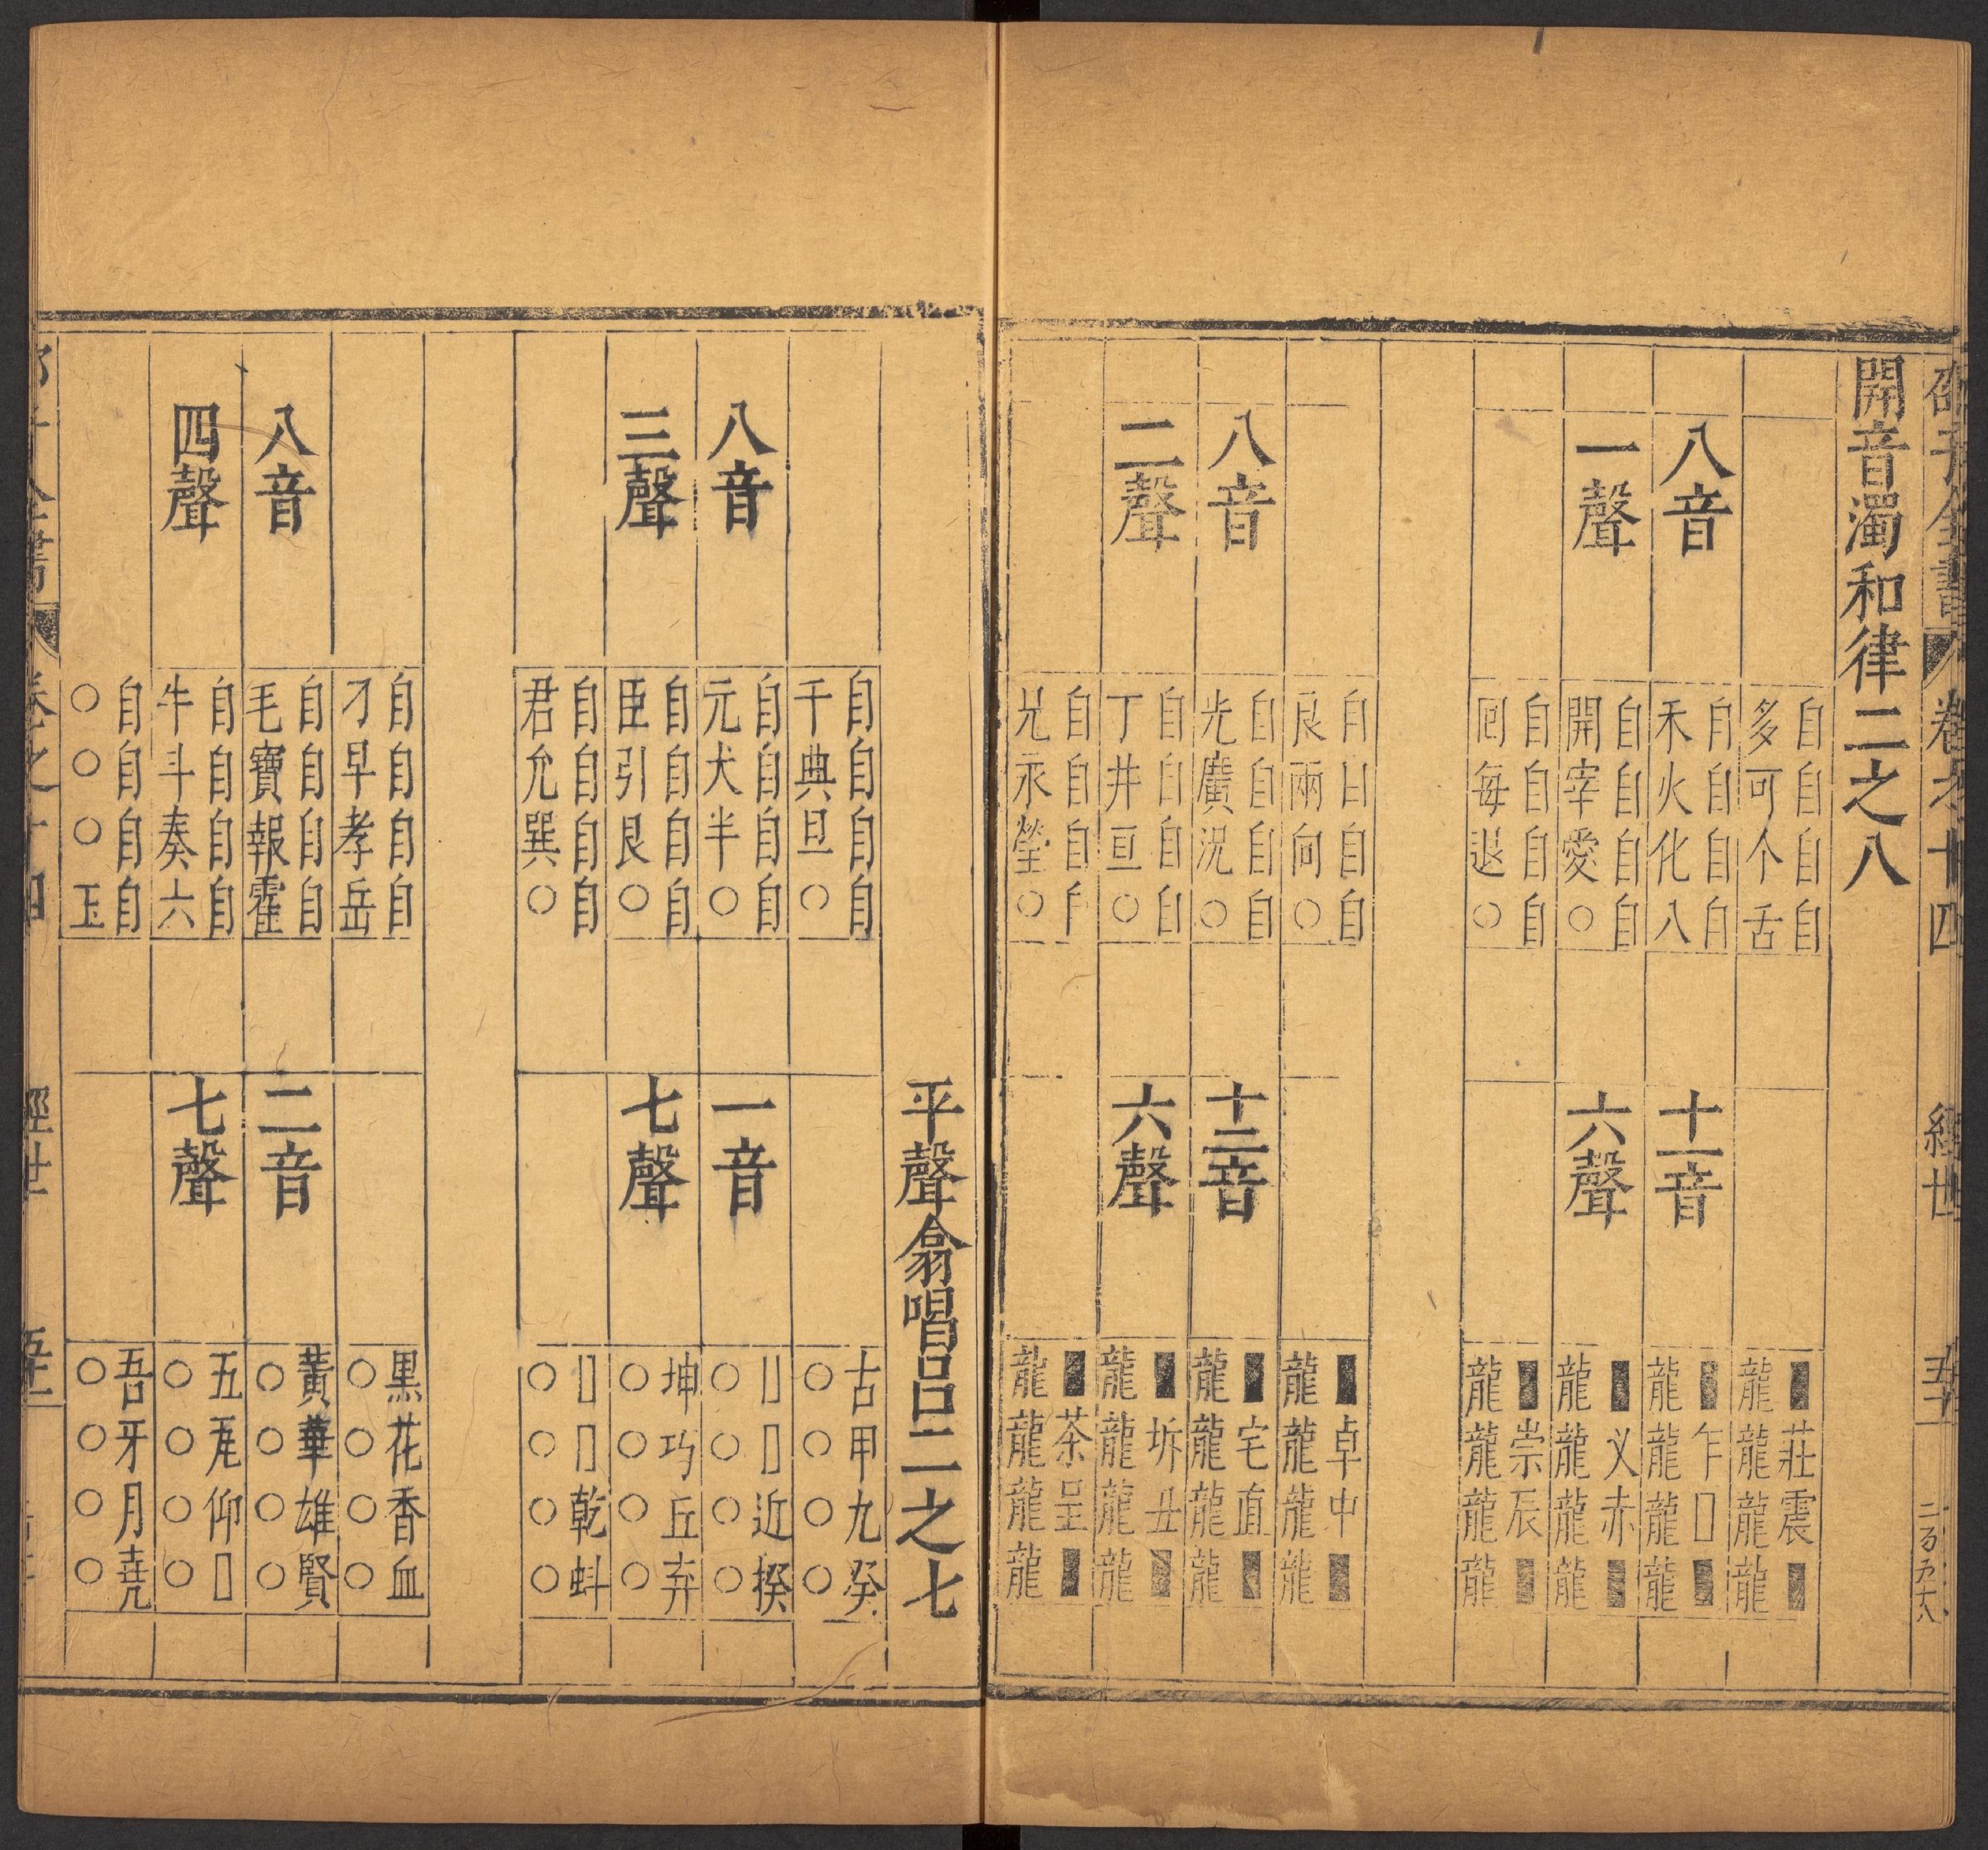 邵子全書 卷之十四 經世
開音濁和律二之八
八音
一聲
自自自自
多可个舌
自自自自
禾火化八
自自自自
開宰愛○
自自自自
回每退○
十一音
六聲
■莊震■
龍龍龍龍
■乍□■
龍龍龍龍
■叉赤■
龍龍龍龍
■崇辰■
龍龍龍龍
八音
二聲
自自自自
良兩向○
自自自自
光廣況○
自自自自
丁井亘○
自自自自
兄永瑩○
十二音
六聲
■卓中■
龍龍龍龍
■宅直■
龍龍龍龍
■坼丑■
龍龍龍龍
■茶呈■
龍龍龍龍
平聲翕唱呂二之七
八音
三聲
自自自自
千典旦○
自自自自
元犬半○
自自自自
臣引艮○
自自自自
君允巽○
一音
七聲
古甲九癸
○○○○
□□近揆
○○○○
坤巧丘弃
○○○○
□□乾蚪
○○○○
八音
四聲
自自自自
刀早孝岳
自自自自
毛寶報霍
自自自自
牛斗奏六
自自自自
○○○玉
二音
七聲
黑花香血
○○○○
黃華雄賢
○○○○
五瓦仰□
○○○○
吾牙月堯
○○○○
卷之十四 經世